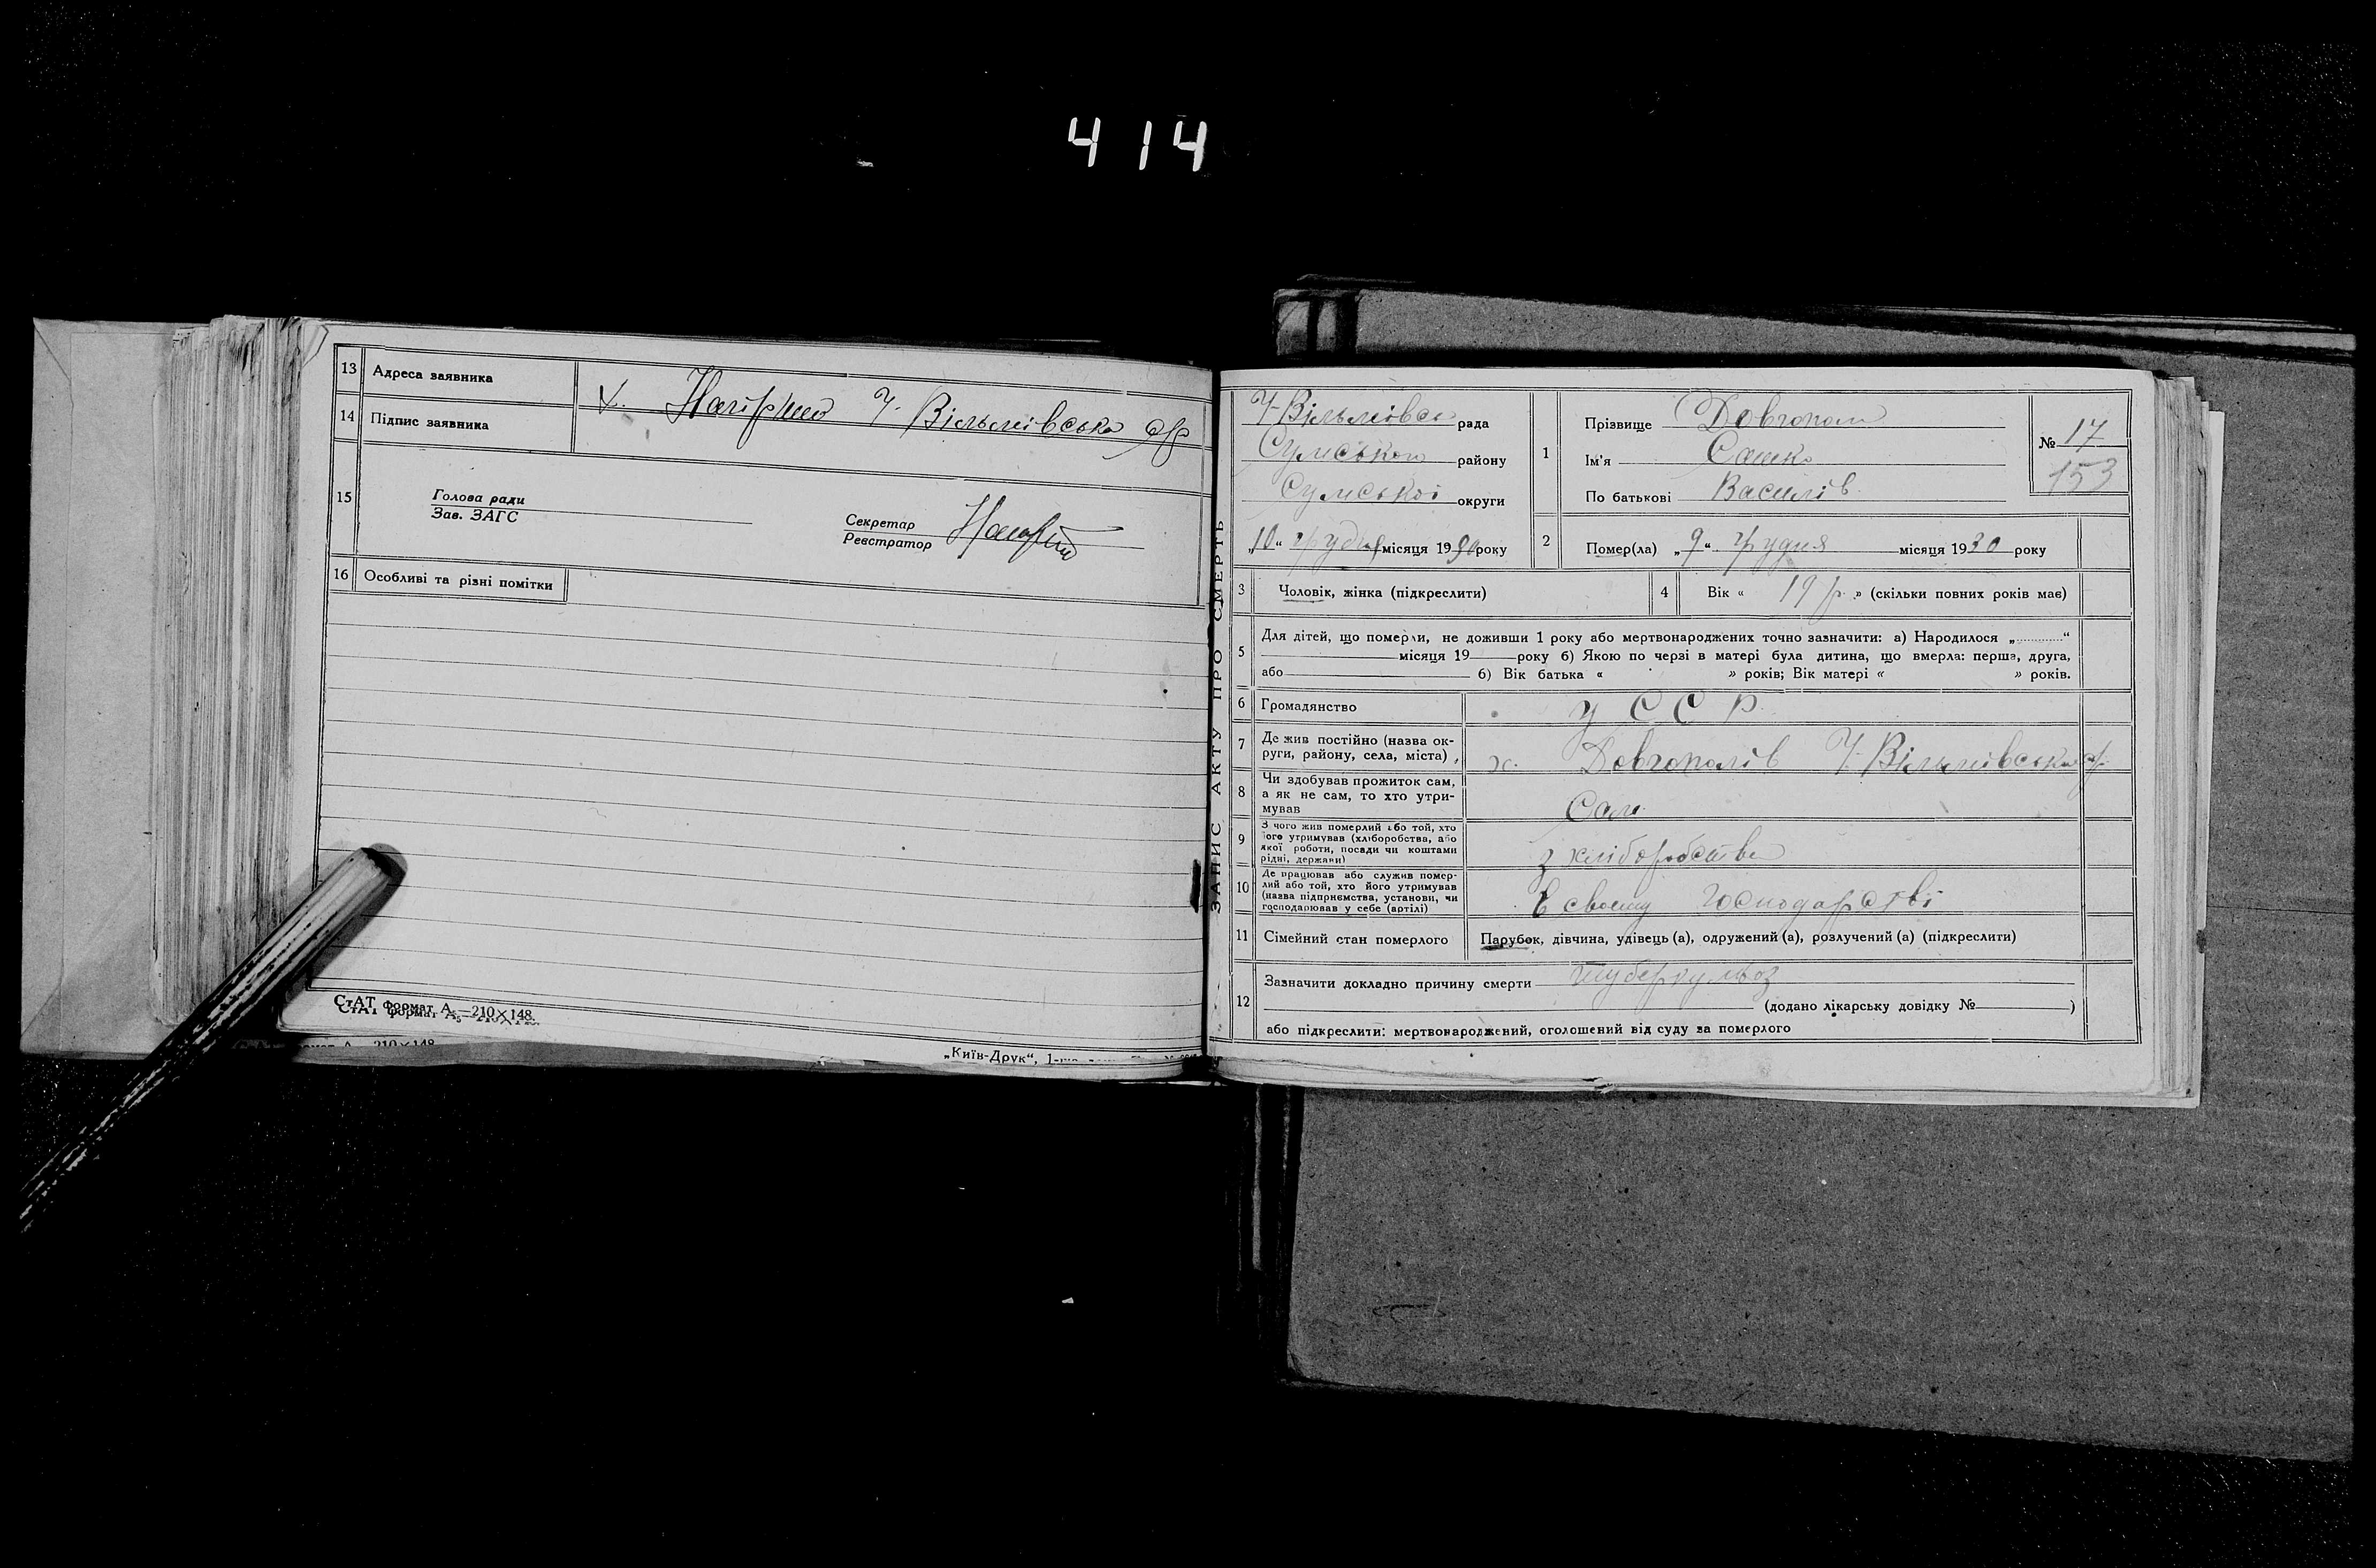 414
13 Адреса заявника
х. Нагірно У-Вільнівська с/р
14 Підпис заявника
15
Голова ради
Зав. ЗАГС
Секретар
Реєстратор
16 Особливі та різні помітки
СтАТ формат А₅—210×148.
„Київ-Друк“, 1-
ЗАПИС АКТУ ПРО СМЕРТЬ
У-Вільнівсь рада
Сумського району
Сумської округи
„10“ грудня місяця 1930 року
1
Прізвище Довгопол
Ім'я Сашко
По батькові Василів
№ 17
153
2 Помер(ла) „9“ грудня місяця 1930 року
3 Чоловік, жінка (підкреслити)
4 Вік « 19 р. » (скільки повних років має)
5 Для дітей, що померли, не доживши 1 року або мертвонароджених точно зазначити: а) Народилося „ “
місяця 19 року б) Якою по черзі в матері була дитина, що вмерла: перша, друга,
або б) Вік батька « » років; Вік матері « » років.
6 Громадянство У С С Р
7 Де жив постійно (назва ок-
руги, району, села, міста)
х. Довгополів У-Вільнівська с/р
8 Чи здобував прожиток сам,
а як не сам, то хто утри-
мував
Сам
9 З чого жив померлий або той, хто
його утримував (хліборобства, або
якої роботи, посади чи коштами
рідні, держави)
з хліборобства
10 Де працював або служив помер-
лий або той, хто його утримував
(назва підприємства, установи, чи
господарював у себе (артілі)
В своєму господарстві
11 Сімейний стан померлого Парубок, дівчина, удівець (а), одружений (а), розлучений (а) (підкреслити)
12 Зазначити докладно причину смерти туберкульоз
(додано лікарську довідку № )
або підкреслити: мертвонароджений, оголошений від суду за померлого